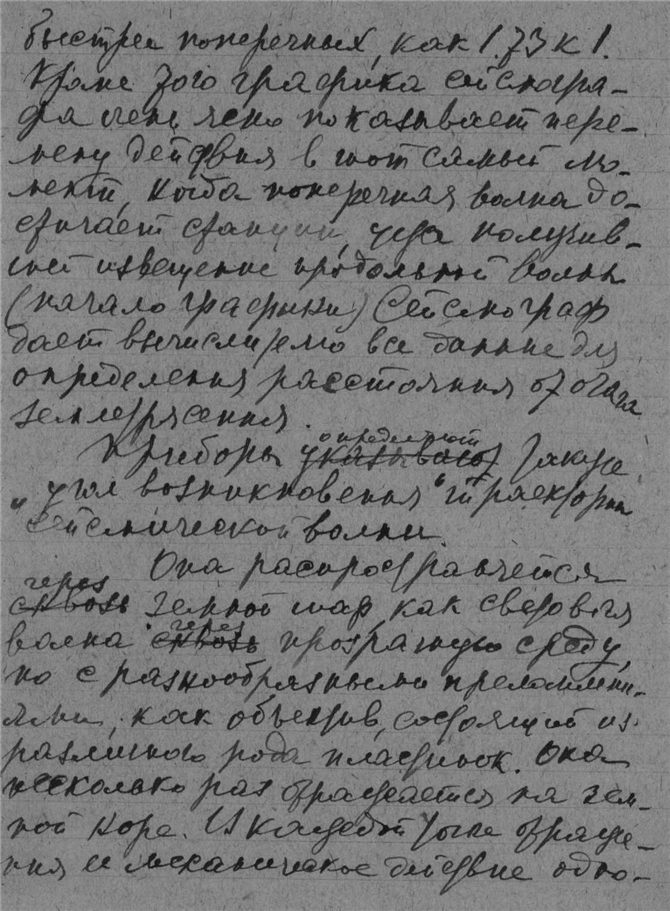 быстрее поперечных, как 1.73 к 1.
Кроме того графика сейсмогра-
фа очень ясно показывает пере-
мену действия в тот самый мо-
мент, когда поперечная волна до-
стигает станции, уже получив-
шей извещение продольной волны
(начало графики) Сейсмограф
дает вычислителю все данные для
определения расстояния от очага
землетрясения.
Приборы указывают определяют также
"угол возникновения" траектории
сейсмической волны.
Она распространяется
сквозь через земной шар как световая
волна сквозь через прозрачную среду,
но с разнообразными преломлени-
ями, как объектив, состоящий из
различного рода пластинок. Она
несколько раз отражается на зем-
ной коре. И каждой точке отраже-
ния ее механическое действие одно-